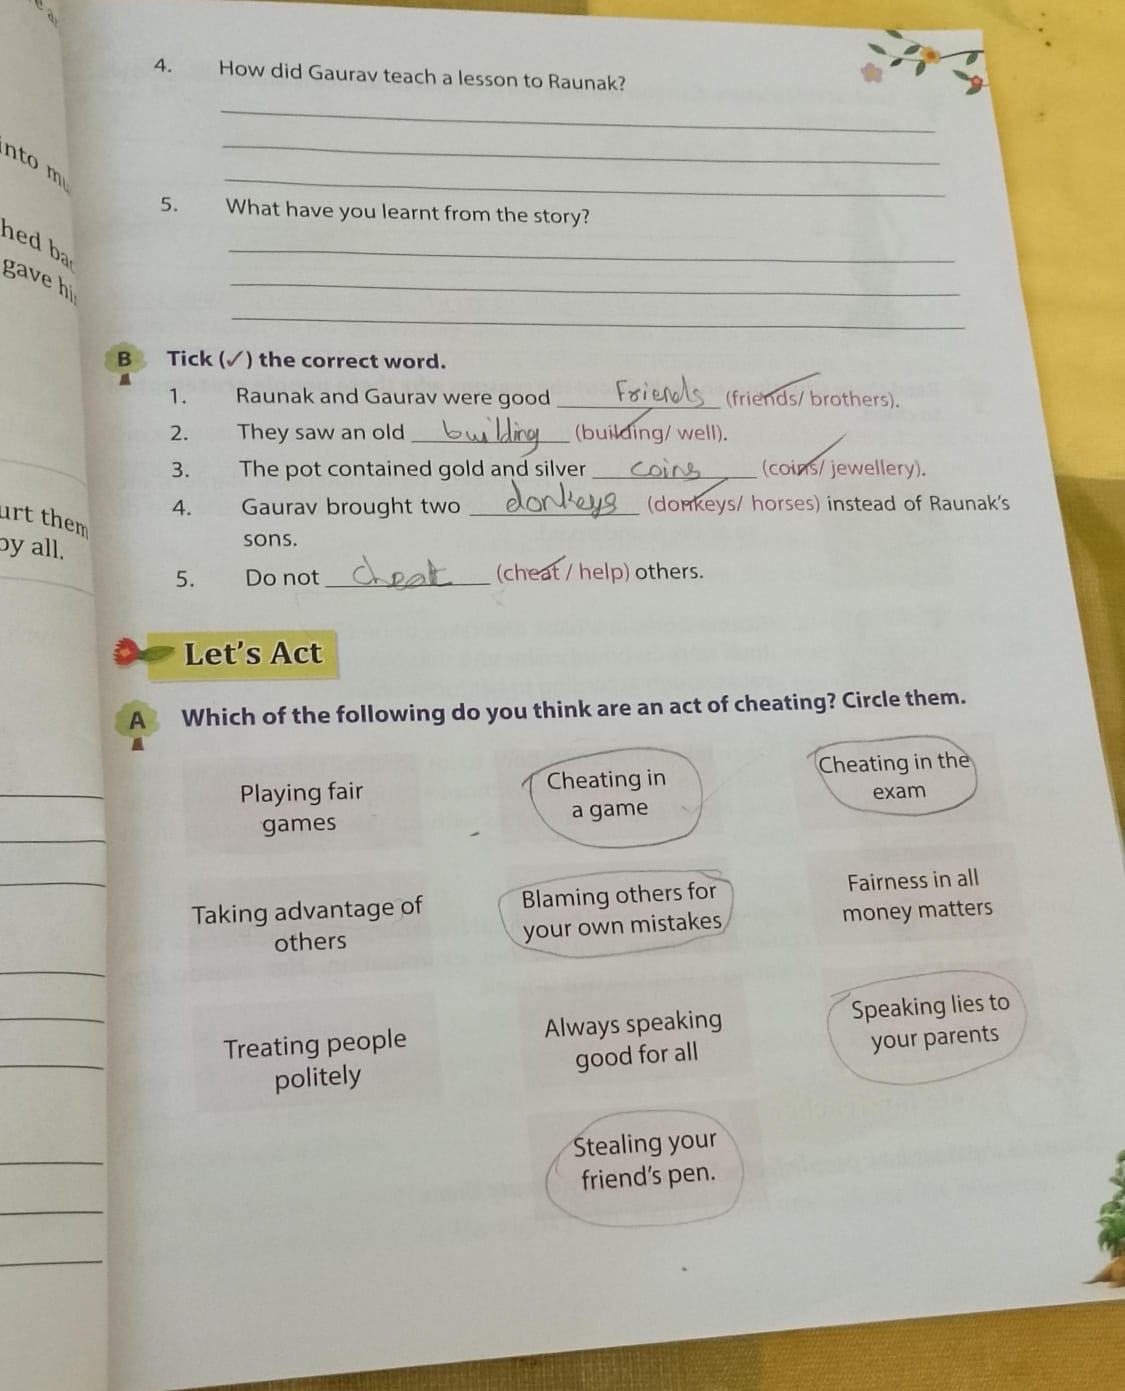 into
hed
gave
urt them
by all.
4. How did Gaurav teach a lesson to Raunak?
5. What have you learnt from the story?
B Tick (✓) the correct word.
1. Raunak and Gaurav were good Friends (friends/ brothers).
2. They saw an old building (building/ well).
3. The pot contained gold and silver coins (coins/ jewellery).
4. Gaurav brought two donkeys (donkeys/ horses) instead of Raunak's
sons.
5. Do not cheat (cheat / help) others.
Let's Act
A Which of the following do you think are an act of cheating? Circle them.
Playing fair
games
Cheating in
a game
Cheating in the
exam
Taking advantage of
others
Blaming others for
your own mistakes
Fairness in all
money matters
Treating people
politely
Always speaking
good for all
Speaking lies to
your parents
Stealing your
friend's pen.